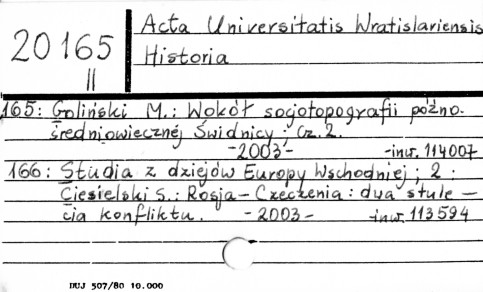 20165
II
Acta Universitatis Wratislaviensis
Historia
165: Goliński M.: Wokół socjotopografii późno-
średniowiecznej Świdnicy; Cz. 2.
-2003- -inw. 114007
166: Studia z dziejów Europy Wschodniej; 2:
Ciesielski S.: Rosja-Czeczenia: dwa stule-
cia konfliktu. -2003- -inw. 113594
DUJ 507/80 10.000